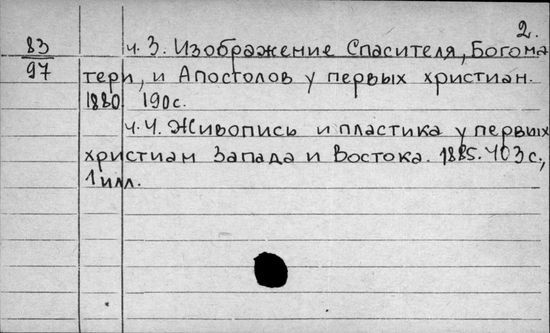 2.
83
97
ч. 3. Изображение Спасителя, Богома
тери, и Апостолов у первых христиан.
1880. 190 с.
ч. 4. Живопись и пластика у первых
христиан Запада и Востока. 1885. 403 с.,
1 илл.